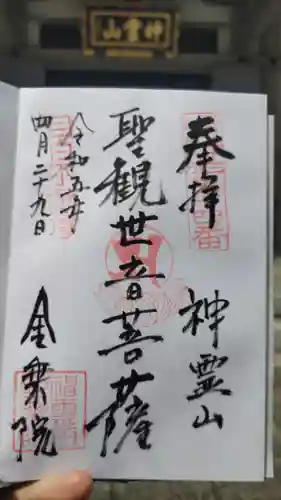 神靈山
奉拝
神霊山
聖観世音菩薩
令和五年
四月二十九日
金乗院